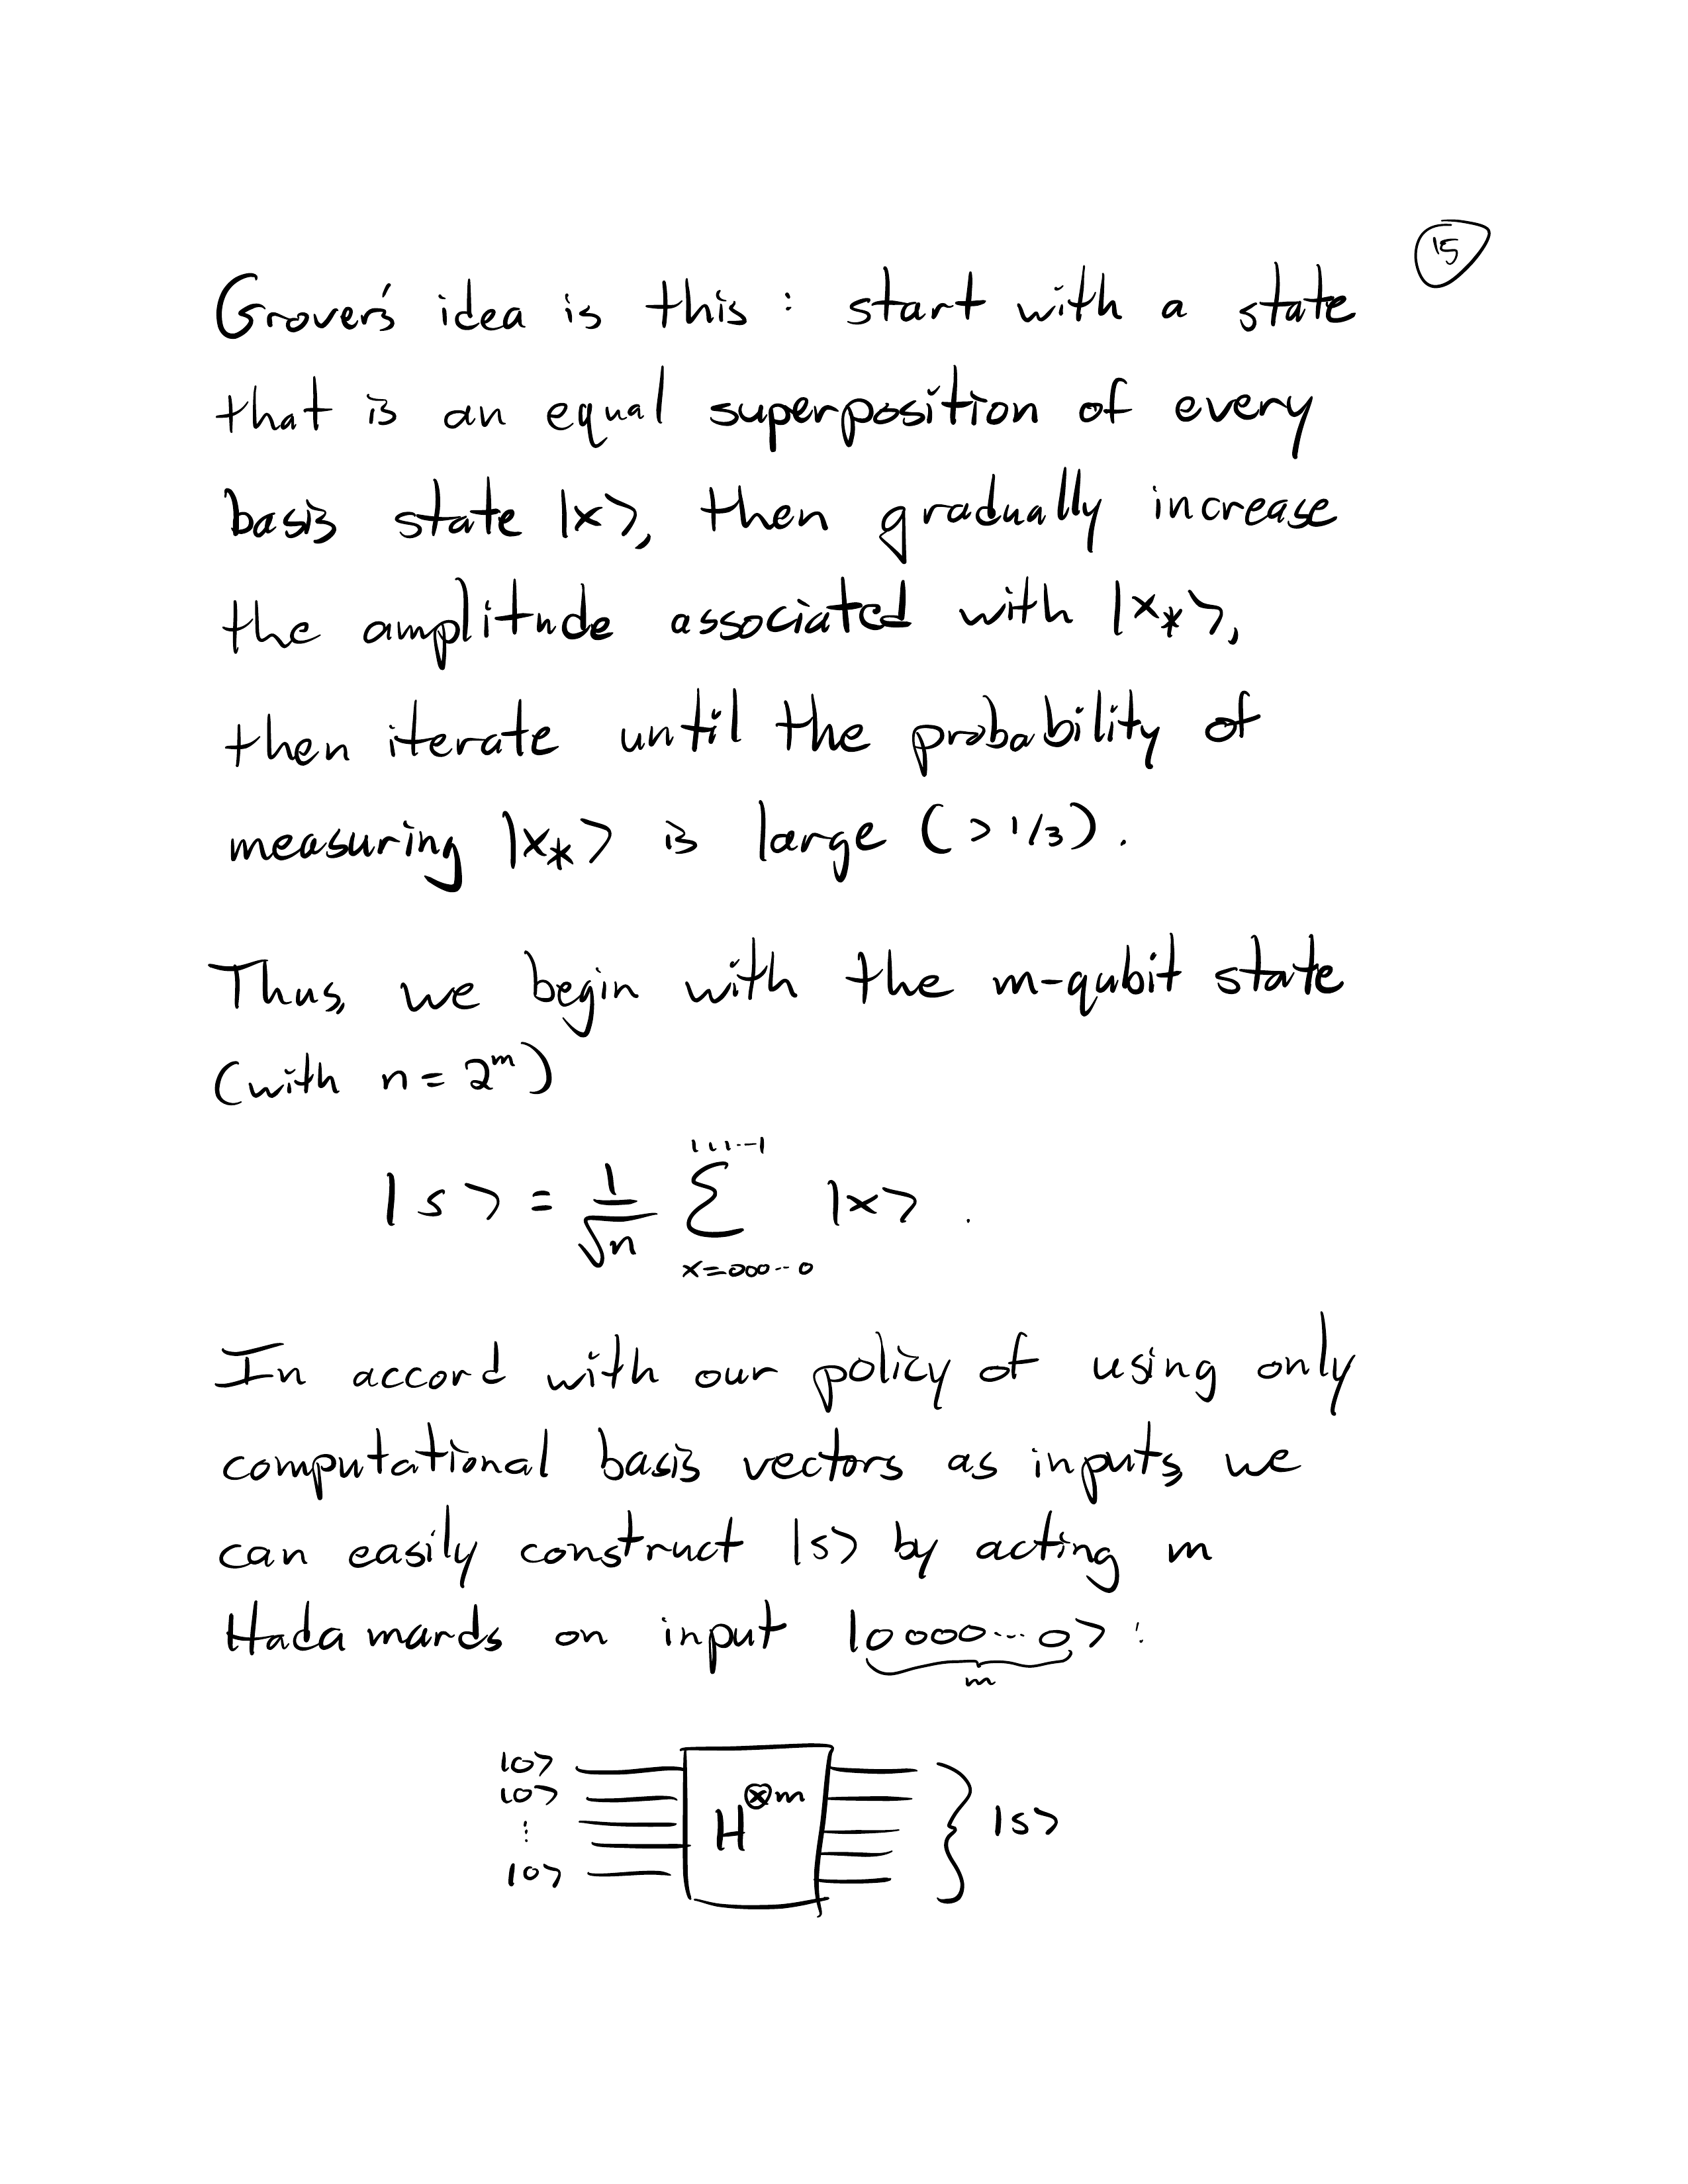 15
Grover's idea is this : start with a state
that is an equal superposition of every
basis state |x⟩, then gradually increase
the amplitude associated with |x*⟩,
then iterate until the probability of
measuring |x*⟩ is large (> 1/3).
Thus, we begin with the m-qubit state
(with n = 2^m)
|s⟩ = 1/√n ∑_{x=000···0}^{111···1} |x⟩ .
In accord with our policy of using only
computational basis vectors as inputs, we
can easily construct |s⟩ by acting m
Hadamards on input |0000···0⟩ :
m
|0⟩
|0⟩
⋮
|0⟩
H^⊗m
|s⟩